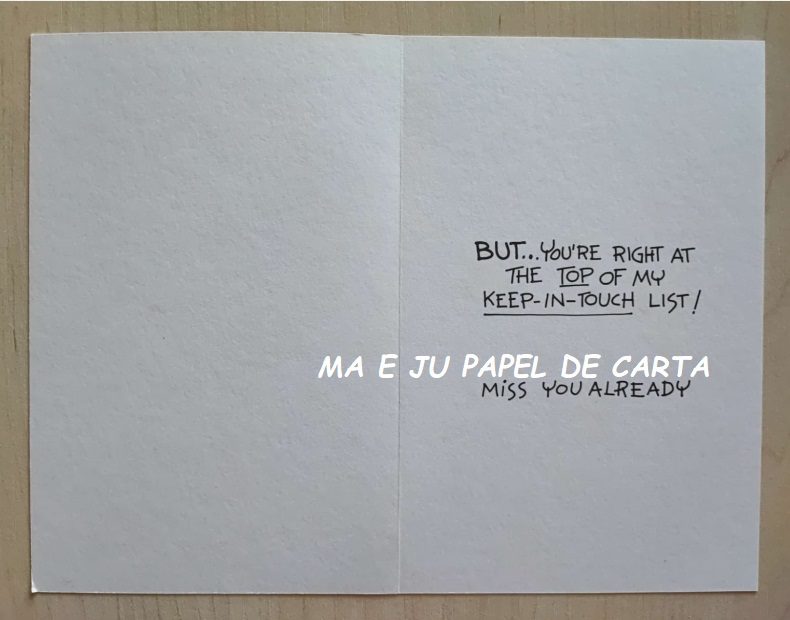 BUT...YOU'RE RIGHT AT
THE TOP OF MY
KEEP-IN-TOUCH LIST!
MA E JU PAPEL DE CARTA
MISS YOU ALREADY